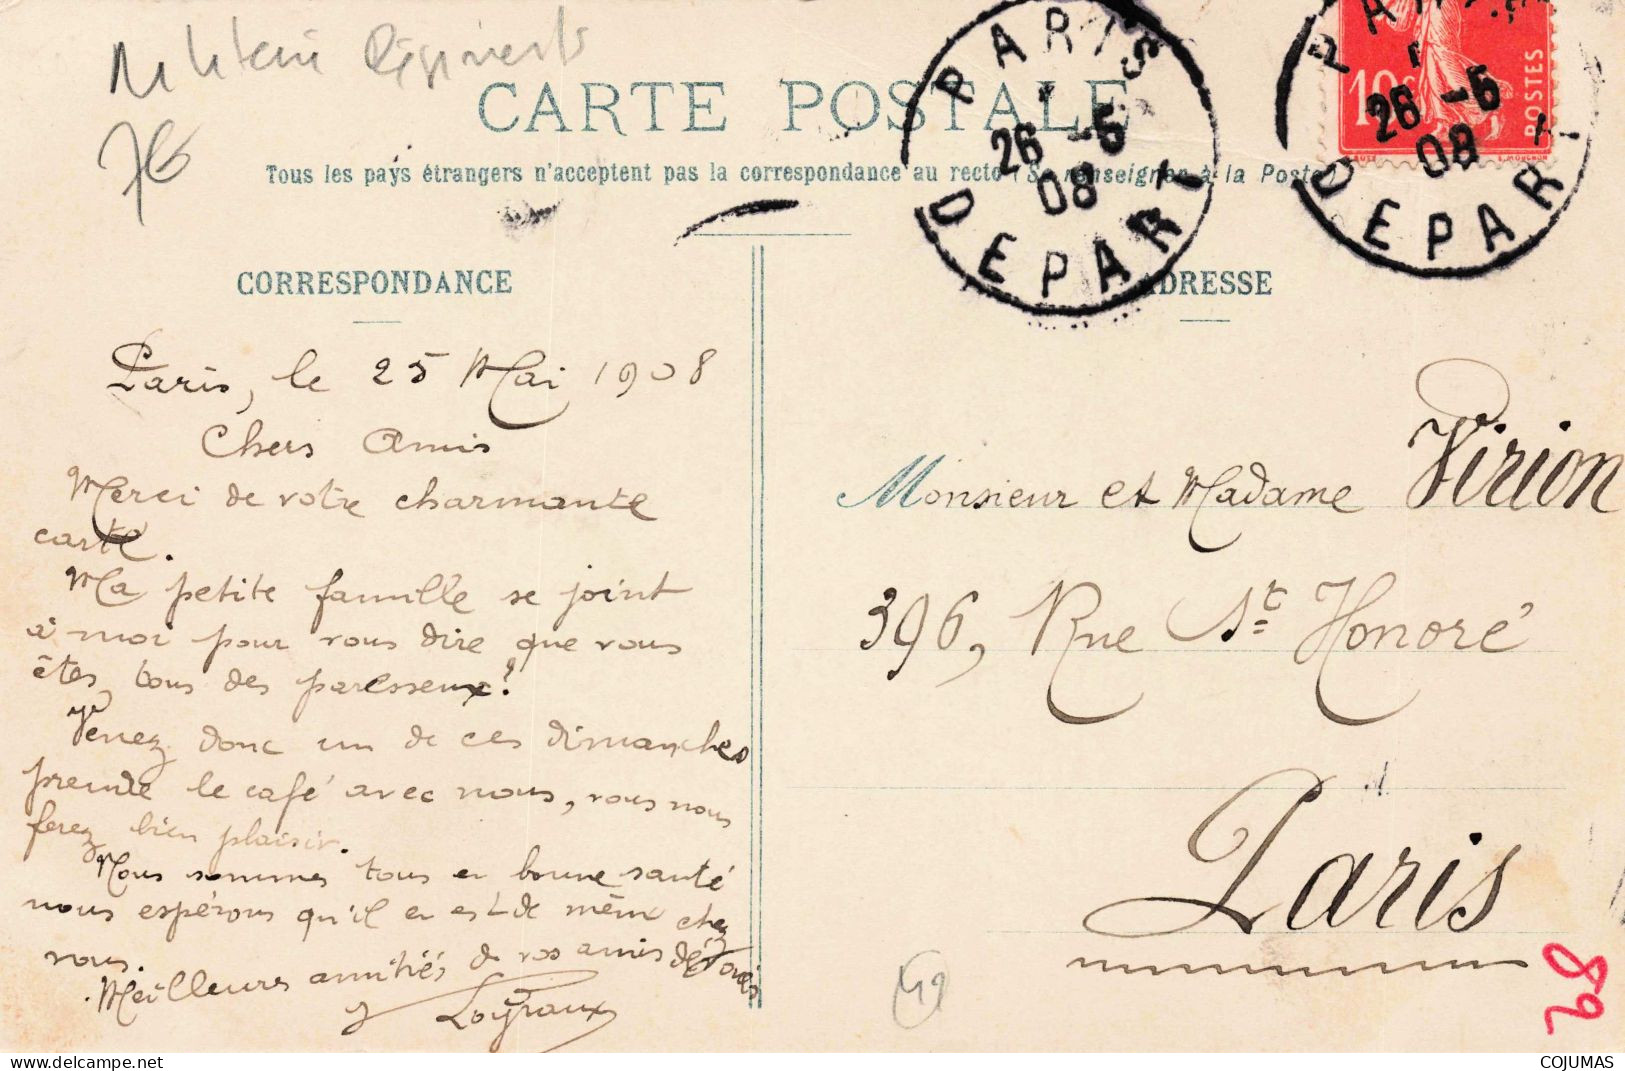 Militaria Régiments
7€
CARTE POSTALE
Tous les pays étrangers n'acceptent pas la correspondance au recto (Se renseigner à la Poste)
PARIS
26 -5
08
DEPART
PARIS
26 -5
08
DEPART
10c
POSTES
CORRESPONDANCE
ADRESSE
Paris, le 25 Mai 1908
Chers Amis
Merci de votre charmante
carte.
Ma petite famille se joint
à moi pour vous dire que vous
êtes, tous des paresseux!
Venez donc un de ces dimanches
prendre le café avec nous, vous nous
ferez bien plaisir.
Nous sommes tous en bonne santé
nous espérons qu'il en est de même chez
vous.
Meilleures amitiés de vos amis dévoués
Monsieur et Madame Virion
396, Rue St Honoré
Paris
49
89
COJUMAS